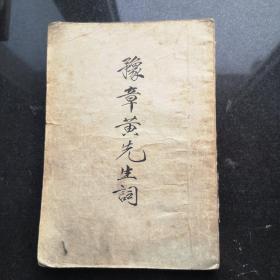 豫章黄先生詞